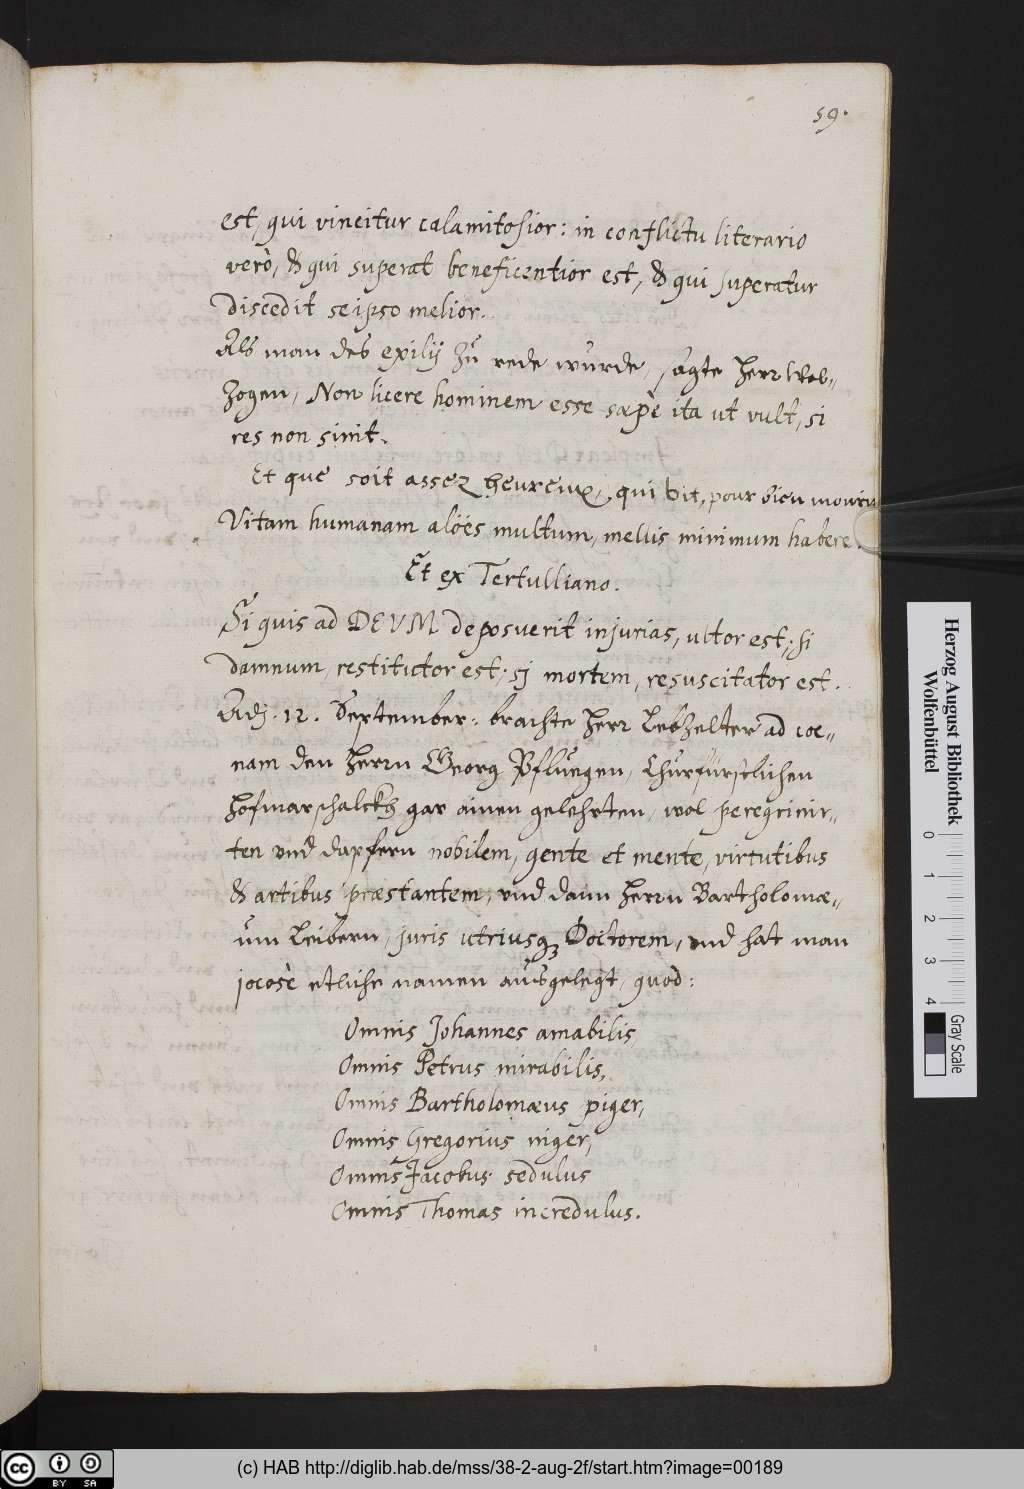 59.
est, qui vincitur calamitosior: in conflictu literario
verò, & qui superat beneficentior est, & qui superatur
discedit seipso melior.
Als man des exilij zu rede wurde, sagte Herr Wol-,
zogen, Non licere hominem esse sæpè ita ut vult, si
res non sinit.
Et que soit assez heureux, qui vit, pour bien mourir
Vitam humanam aloës multum, mellis minimum habere.
Et ex Tertulliano.
Si quis ad DEUM deposuerit injurias, ultor est; si
damnum, restitutor est; sj mortem, resuscitator est.
Adj. 12. September. brachte Herr Lebzelter ad coe-,
nam den Herrn Georg Pfluegen, Churfürstlichen
Hofmarschalckh gar ainen gelehrten, wol peregrinir-,
ten und dapfern nobilem, gente et mente, virtutibus
& artibus præstantem, und dann Herrn Bartholomæ-,
um Leibern, juris utriusq3 Doctorem, und hat man
jocosè etliche namen ausgelegt, quod:
Omnis Johannes amabilis
Omnis Petrus mirabilis,
Omnis Bartholomæus piger,
Omnis Gregorius niger,
Omnis Jacobus sedulus
Omnis Thomas incredulus.
Herzog August Bibliothek
Wolfenbüttel
0 1 2 3 4
Gray Scale
CC BY SA
(c) HAB http://diglib.hab.de/mss/38-2-aug-2f/start.htm?image=00189